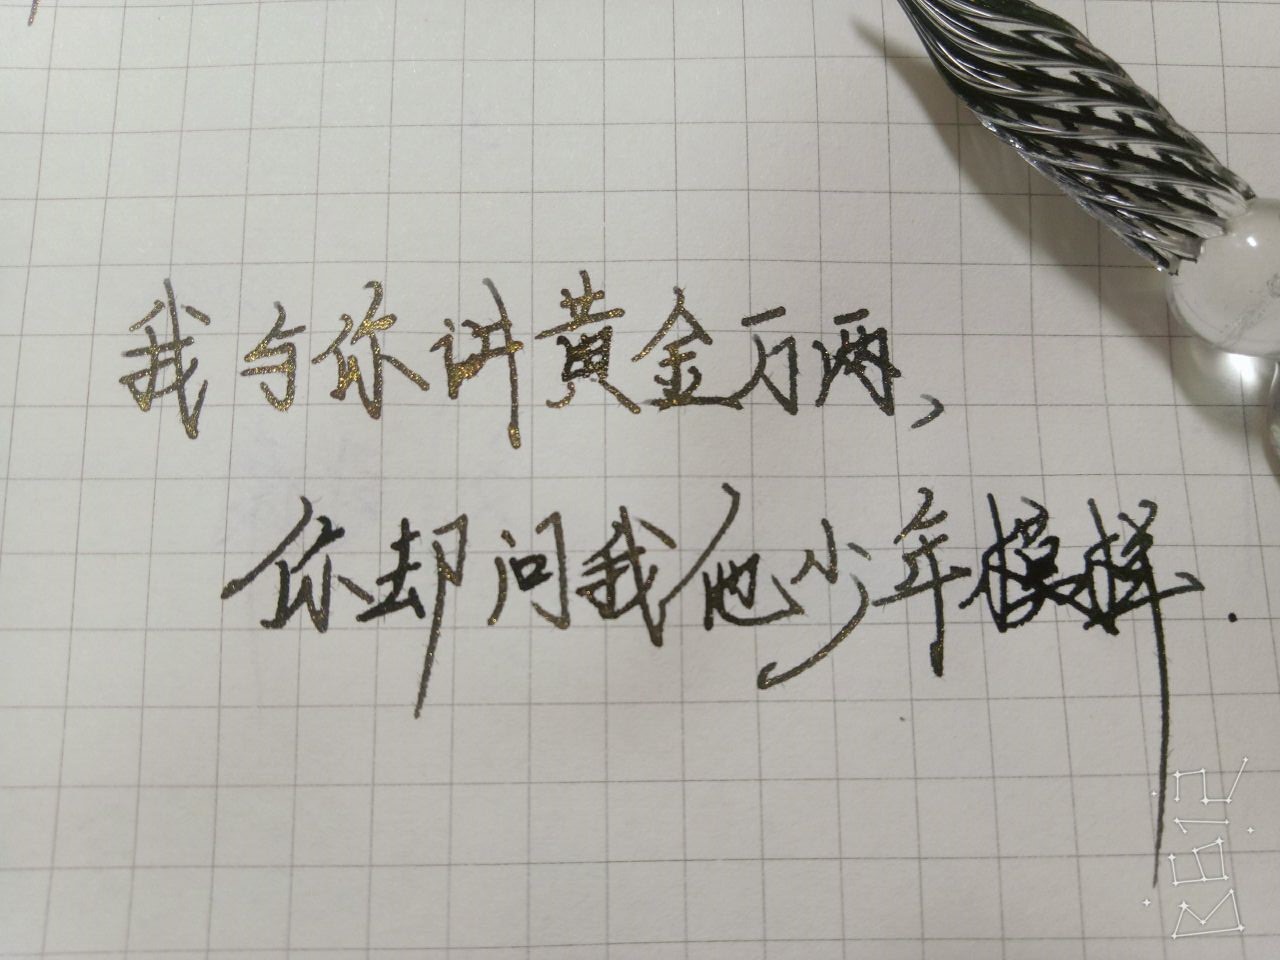 我与你讲黄金万两,
你却问我他少年模样.
B612